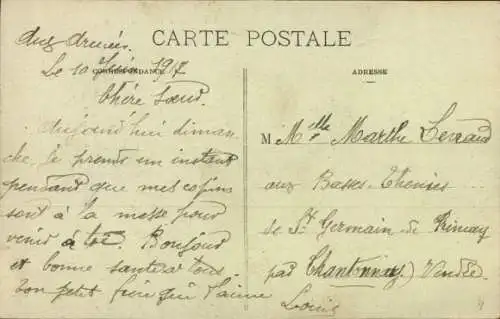 Aux Armées.
CARTE POSTALE
Le 10 Juin 1917
CORRESPONDANCE
ADRESSE
Chère Sœur.
Aujourd'hui diman-
che, je prends un instant
pendant que mes copins
sont à la messe pour
venir à toi. Bonjour
et bonne santé à tous
ton petit frère qui t'aime
Louis
M Melle Marthe
aux Basses-
de St Germain de Prinçay
par Chantonnay) Vendée